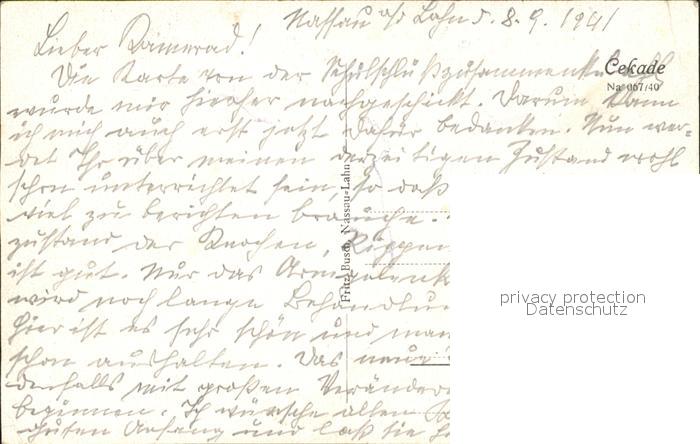 Nassau a/d Lahn d. 8. 9. 1941
Lieber Kamerad!
Die Karte von der Schulschlußzusammenkunft
Cekade
Na 067/40
wurde mir hierher nachgeschickt. Darum kann
ich mich auch erst jetzt dafür bedanken. Nun wer-
det Ihr über meinen derzeitigen Zustand wohl
schon unterrichtet sein, so daß
viel zu berichten brauche.
zustand der Knochen, Rippen
ist gut. Nur das Armgelenk
wird noch lange Behandlu
Hier ist es sehr schön und man
schon aushalten. Das neue
denfalls mit großen Veränder
beginnen. Ich wünsche allen
guten Anfang und laß sie
Fritz Busch, Nassau-Lahn
privacy protection
Datenschutz